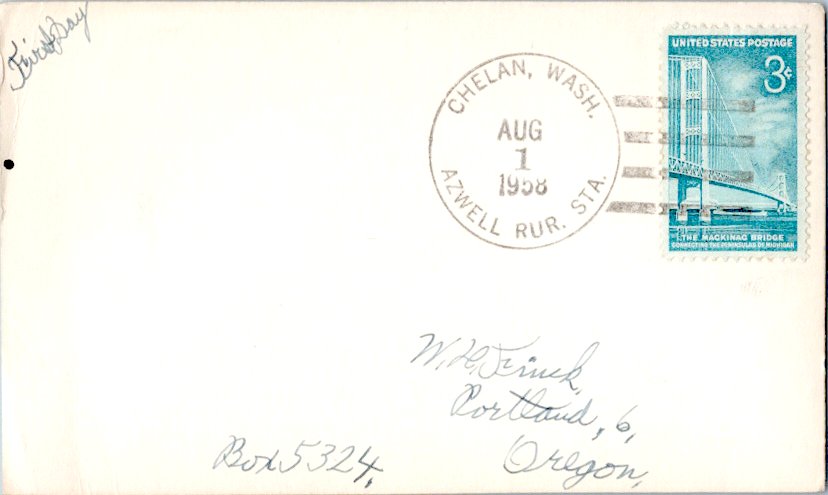 First Day
UNITED STATES POSTAGE
3¢
CHELAN, WASH.
AUG
1
1958
AZWELL RUR. STA.
THE MACKINAC BRIDGE
CONNECTING THE PENINSULAS OF MICHIGAN
W. H.
Portland, 6,
Box 5324, Oregon,